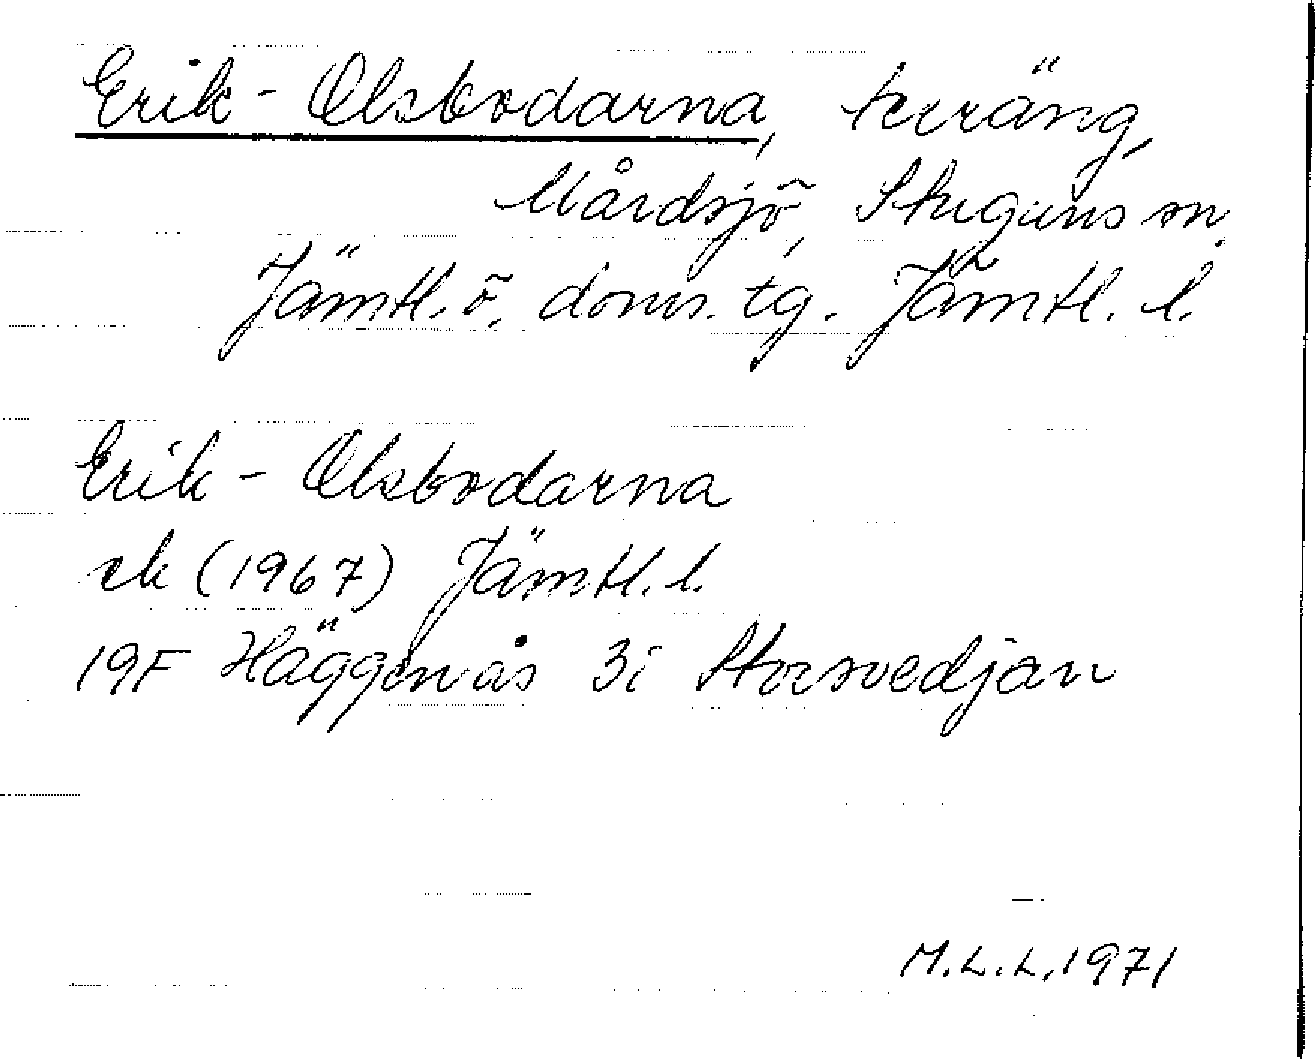 Erik-Olsbodarna, terräng,
Mårdsjö, Stuguns sn,
Jämtl. ö. doms. tg. Jämtl. l.
Erik-Olsbodarna
ek (1967) Jämtl. l.
19F Häggenås 3i Storsvedjan
M.L.L. 1971